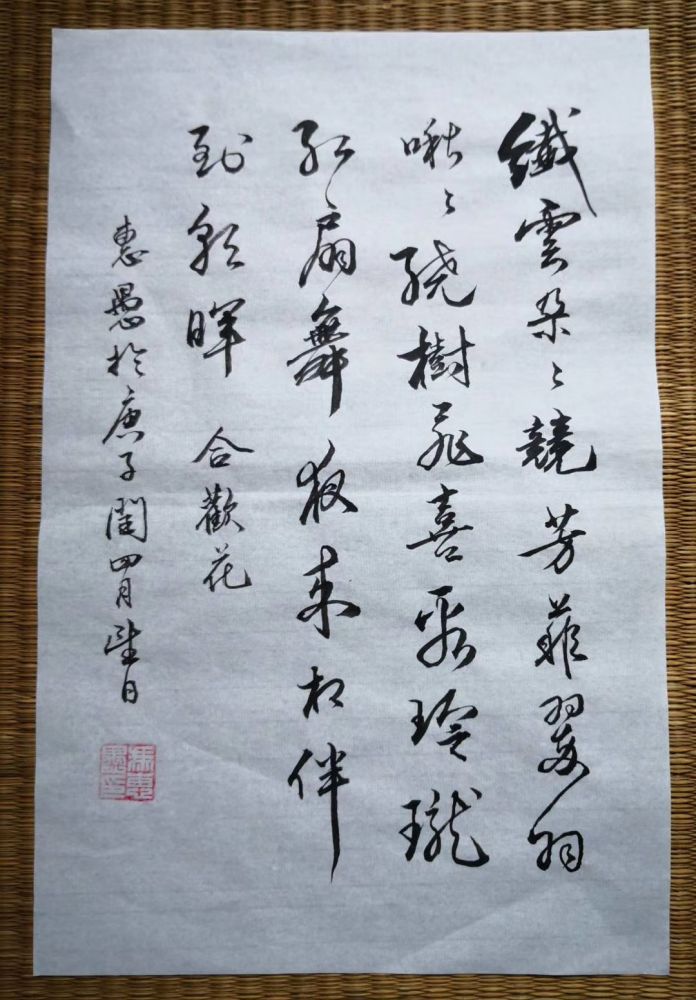 纖雲朵〻競芳菲翠羽
啾〻繞樹飛喜看玲瓏
紅扇舞夜來相伴
到朝暉 合歡花
惠愚於庚子閏四月望日